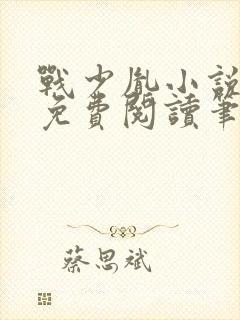 戰少胤小說
免費閱讀筆
蔡思斌